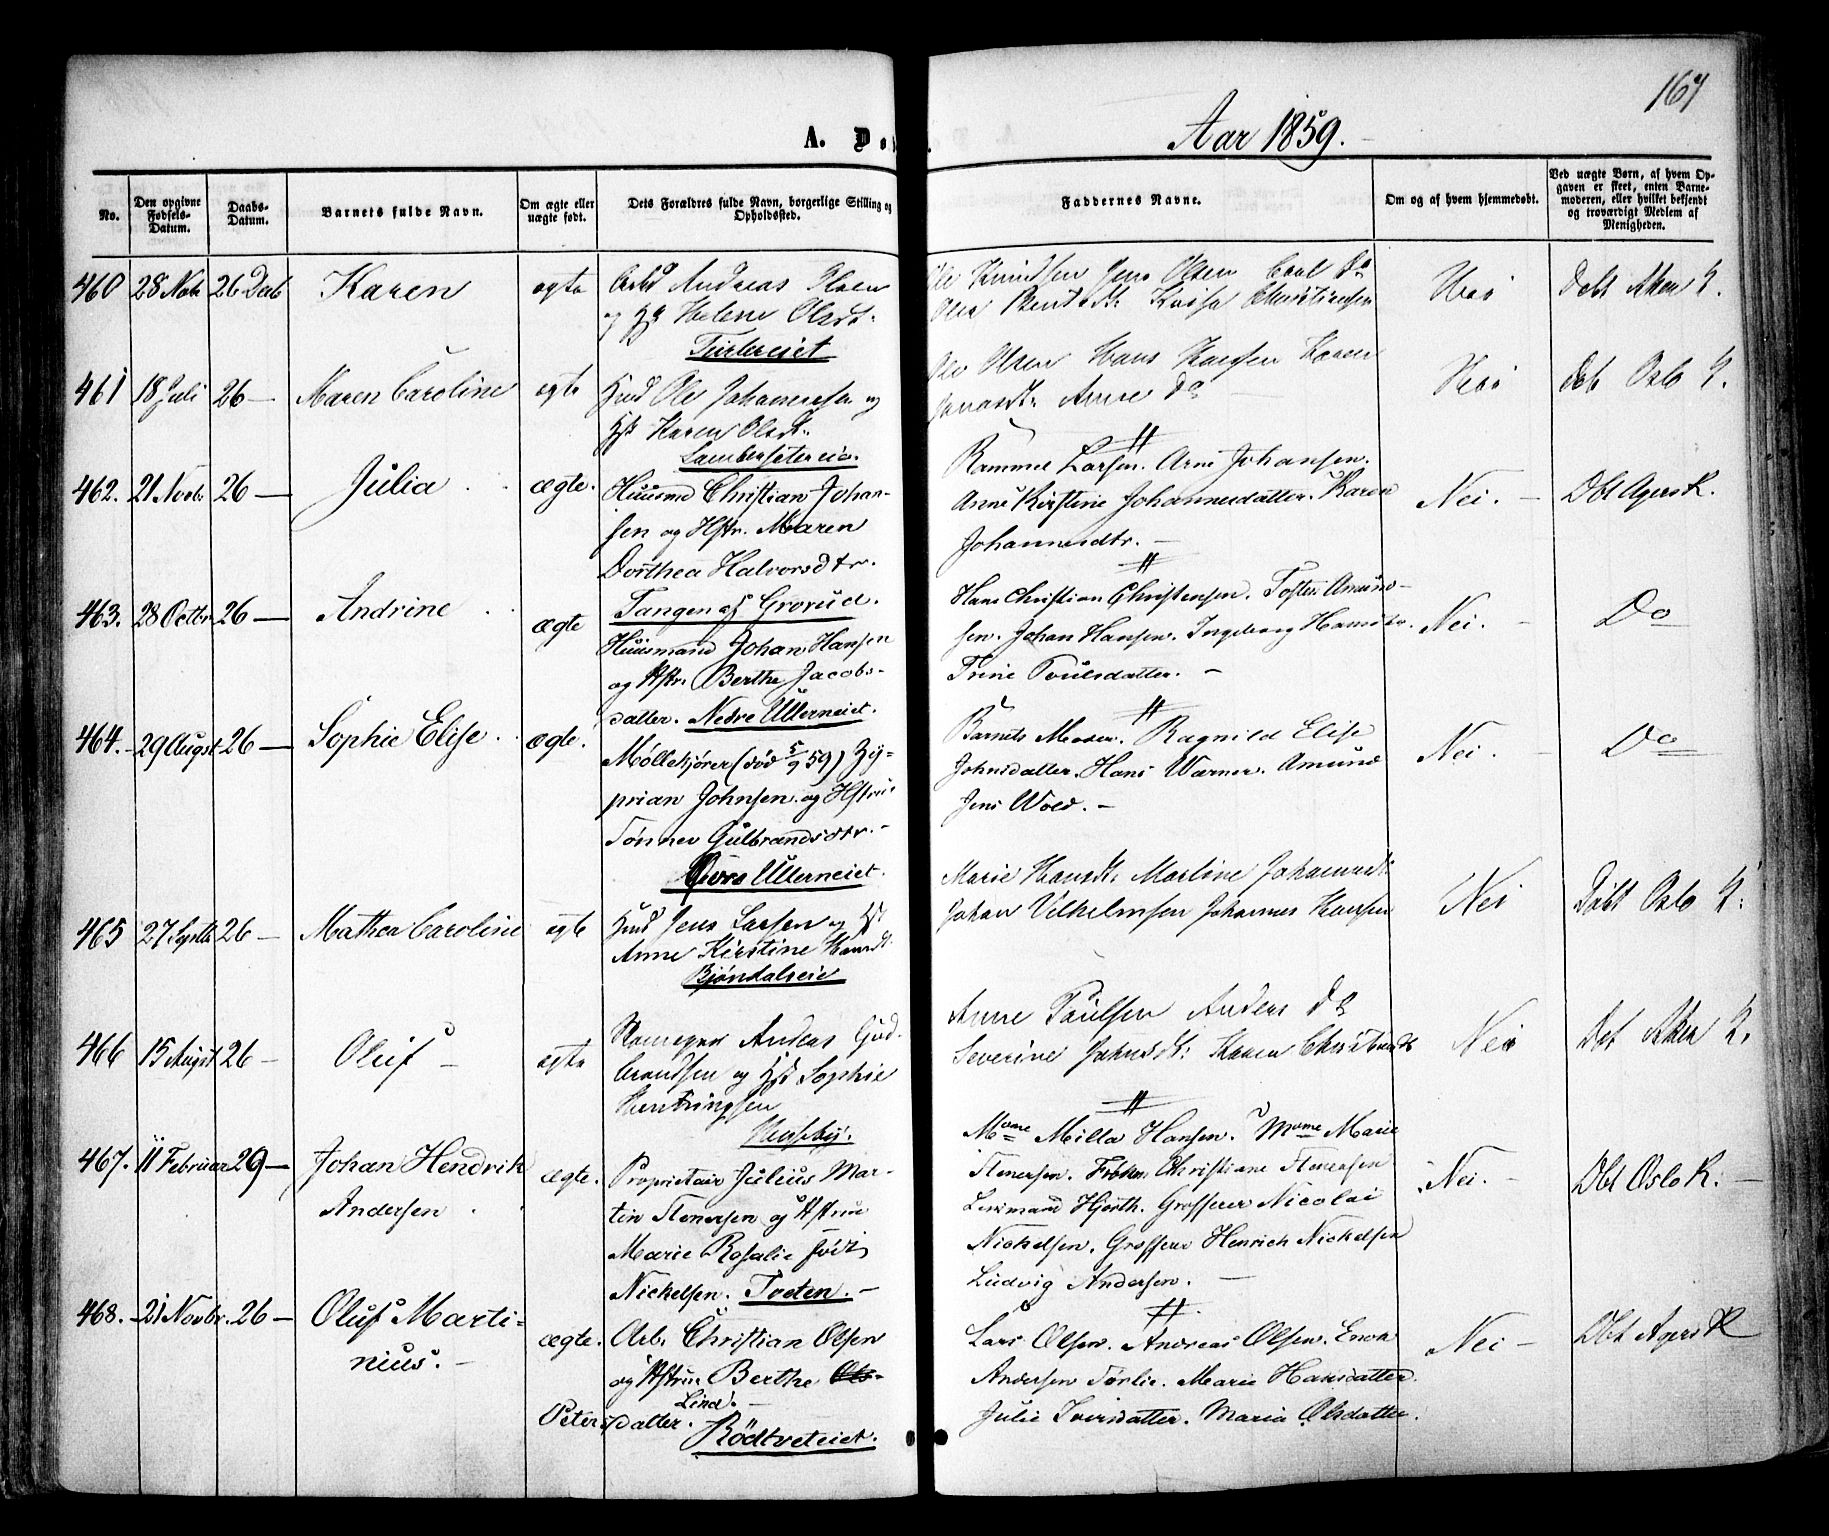 167
A. Dø
Aar 1859.
No.
Den opgivne Fødsels-Datum.
Daabs-Datum.
Barnets fulde Navn.
Om ægte eller uægte født.
Dets Forældres fulde Navn, borgerlige Stilling og Opholdssted.
Faddernes Navne.
Om og af hvem hjemmedøbt.
Ved uægte Børn, af hvem Opgaven er skeet, enten Barnemoderen, eller hvilket bekjendt og troværdigt Medlem af Menigheden.
460 28 Novb 26 Decb Karen ægte
Andreas Olsen
og Hst Helene Olsdt.
Ole Knudsen Jens Olsen Carl Do
Christiansen
Nei
Døbt Aker K.
461 18 Juli 26 — Maren Caroline ægte
Hmd Ole Johannesen og
Hst Karen Olsdt.
Lambersetereie.
Ole Olsen Hans Hansen Karen
Anne Do
Nei
Døb Oslo K.
462. 21 Novbr 26 — Julia ægte.
Huusmd Christian Johan-
sen og Hstr. Maren
Dorthea Halvorsdtr.
Tangen af Grorud.
Larsen. Arne Johansen.
Anne Kirstine Johannesdatter. Karen
Johannesdtr. —
Nei. —
Dbt Agers K.
463. 28 Octbr 26 — Andrine ægte
Huusmand Johan Hansen
og Hstr. Berthe Jacobs-
datter. Nedre Ullerneiet.
Hans Christian Christensen. Tosten Amund-
sen. Johan Hansen. Ingeborg Hansdtr.
Trine Poulsdatter. —
Nei. —
Do
464. 29 August 26 — Sophie Elise. ægte.
Møllekjører (død 5/9 59) Zy-
prian Johnsen og Hstrue
Tønner Gulbrandsdtr. —
Øvre Ullerneiet.
Barnets Moder. Ragnild Elise
Johnsdatter. Hans Warner. Amund
Jens Wold. —
Nei. —
Do
465 27 Septb 26 — Mathea Caroline ægte
Hmd Jens Larsen og Hst
Anne Kirstine Hansdt.
Bjøndalseie
Marie Hansdt: Martine Johannesdt:
Johan Vilhelmsen Johannes Hansen
Nei
Døbt Oslo K.
466 15 August 26 — Oluf — ægte
Andreas Gud-
brandsen og Hst Sophie
Anne Poulsen Anders Do
Severine Karen
Nei
Døt Aker K.
467. 11 Februar 29 — Johan Hendrik
Andersen ægte.
Proprietair Julius Mar-
tin Stenersen og Hstrue
Marie Rosalie født
Nickelsen. Tveten. —
Mme Milla Hansen. Mme Marie
Stenersen. Frøken Christiane Stenersen
Lensmand Hjorth. Grosserer Nicolai
Nickelsen. Grosserer Henrich Nickelsen
Ludvig Andersen. —
Nei. —
Dbt Oslo K. —
468. 21 Novbr. 26 — Oluf Marti-
nius. — ægte.
Arb. Christian Olsen
og Hstrue Berthe Ols-
Lind.
Petersdatter.
Rödtveteiet.
Lars Olsen. Andreas Olsen.
Andersen Marie Hansdatter.
Julie Iversdatter. Maria Olsdatter.
Nei —
Dbt Agers K